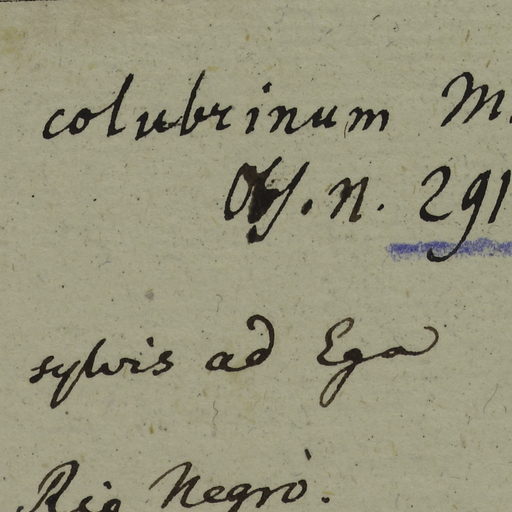 colubrinum M.
Obs. n. 291
sylvis ad Ega
Rio Negro.